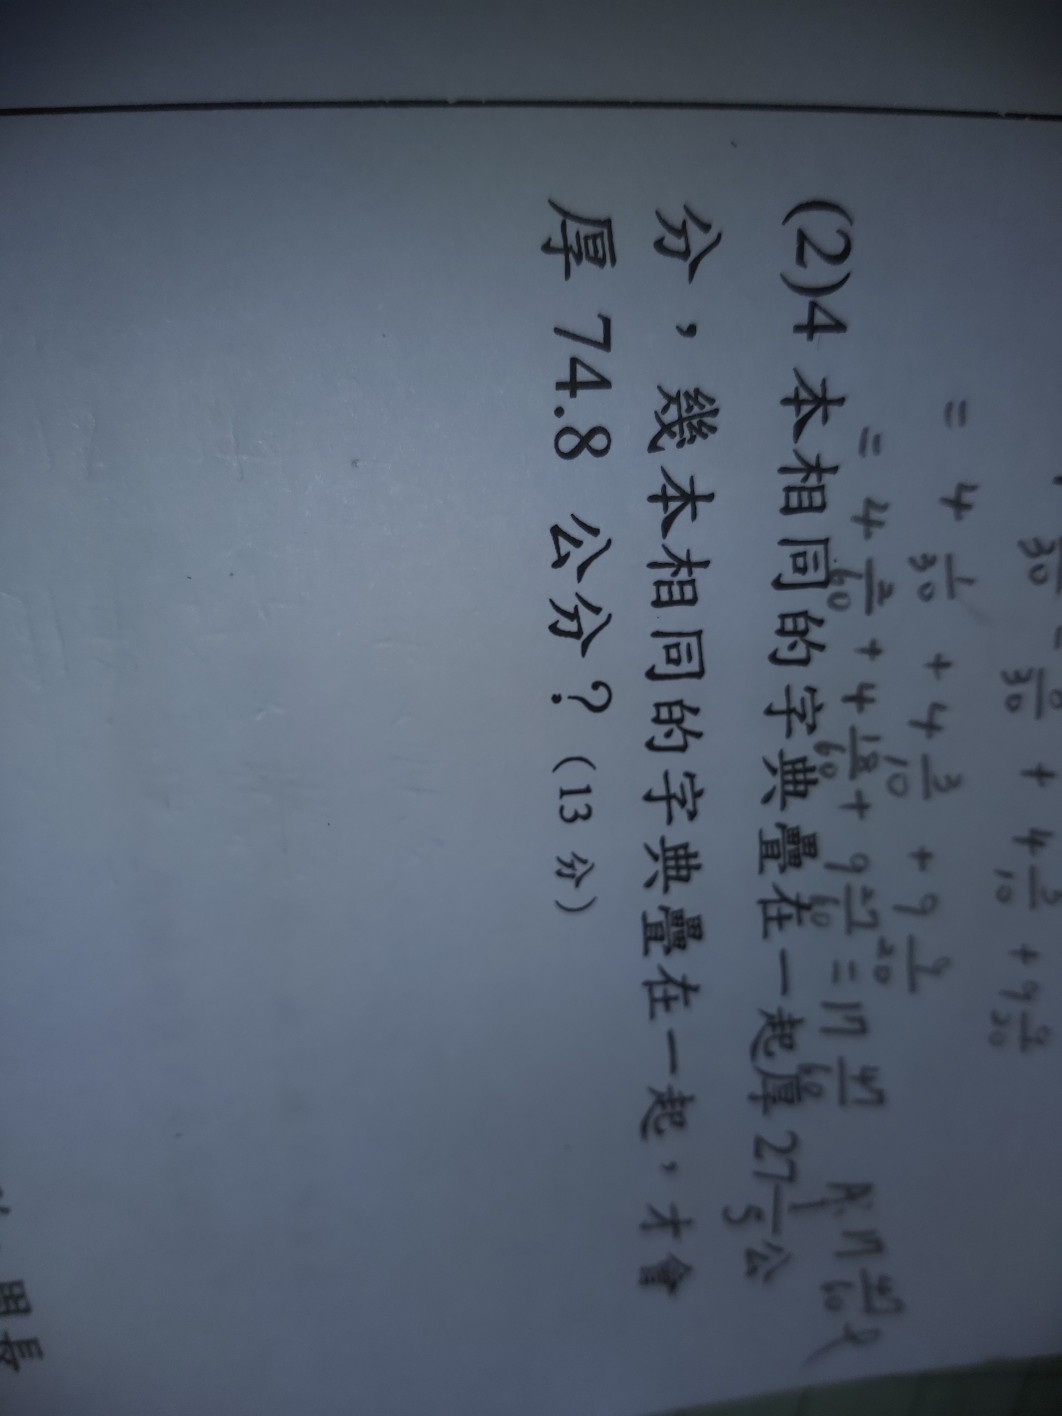 = 4 1/30 + 4 3/10 + 9 9/20
= 4 2/60 + 4 18/60 + 9 27/60 = 17 47/60 A: 17 47/60
(2)4 本相同的字典疊在一起厚 27 1/5 公
分，幾本相同的字典疊在一起，才會
厚 74.8 公分？（13 分）